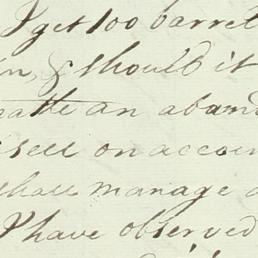 I get 100 barrel
& should it
an aban
sell on accoun
shall manage a
I have observed